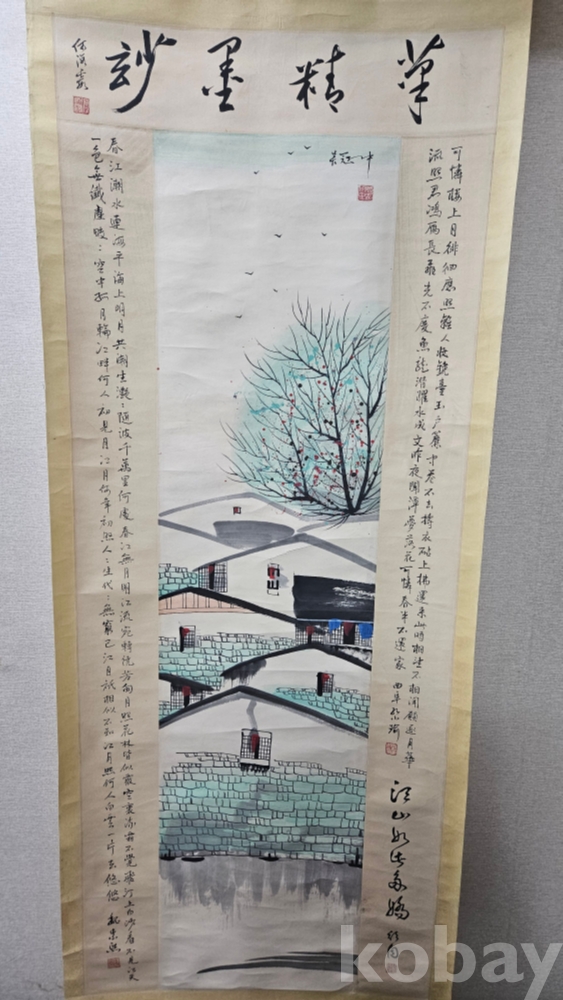 筆精墨玅
吴冠中
可憐樓上月徘徊應照離人妝鏡臺玉户簾中卷不去擣衣砧上拂還來此時相望不相聞願逐月華
流照君鴻雁長飛光不度魚龍潛躍水成文昨夜閒潭夢落花可憐春半不還家 曲阜
江山如此多嬌
春江潮水連海平海上明月共潮生灧〻隨波千萬里何處春江無月明江流宛轉繞芳甸月照花林皆似霰空裏流霜不覺飛汀上白沙看不見江天
一色無纖塵皎〻空中孤月輪江畔何人初見月江月何年初照人〻生代〻無窮已江月祇相似不知江月照何人白雲一片去悠悠
kobay